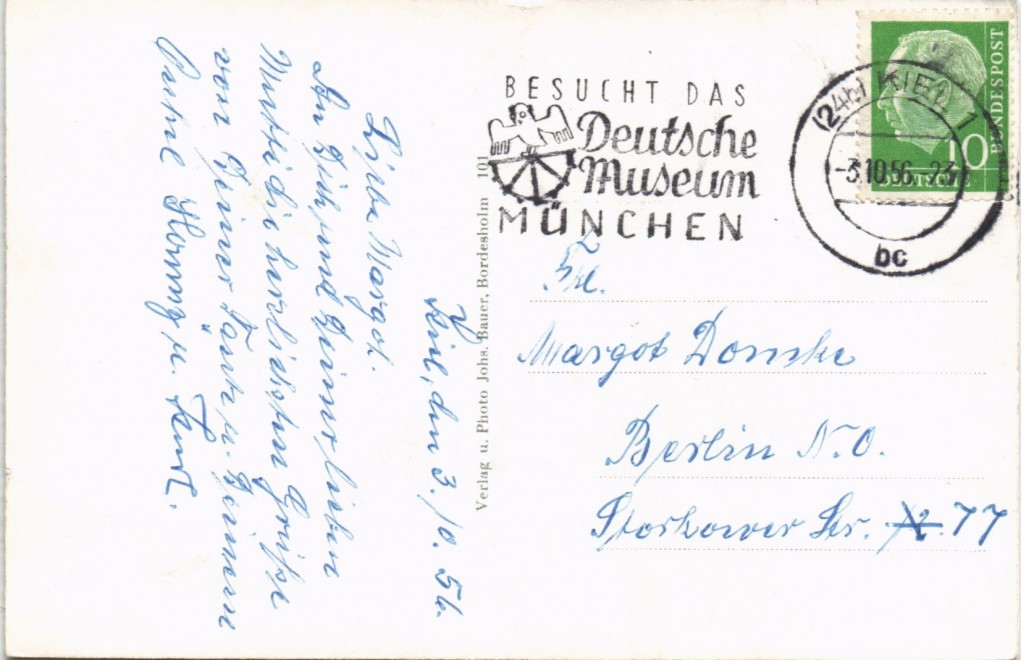 BESUCHT DAS
Deutsche
Museum
MÜNCHEN
(24b) KIEL 1
-3.10.56.-23
bc
10
BUNDESPOST
DEUTSCHE
Kiel, den 3.10.56.
Liebe Margot.
An Dich und Deiner lieben
Mutti die herzlichsten Grüße
von Deiner Tante u. Deinem
Onkel
u. Kurt.
Verlag u. Photo Johs. Bauer, Bordesholm 101
Frl.
Margot Domke
Berlin N.O.
Storkower Str. 77